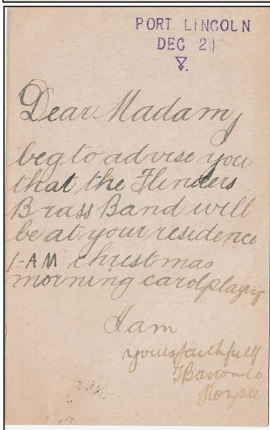 PORT LINCOLN
DEC 20
Dear Madam,
beg to advise you
that the Flinders
Brass Band will
be at your residence
1-AM christmas
morning carolplaying
I am
yours faithfully